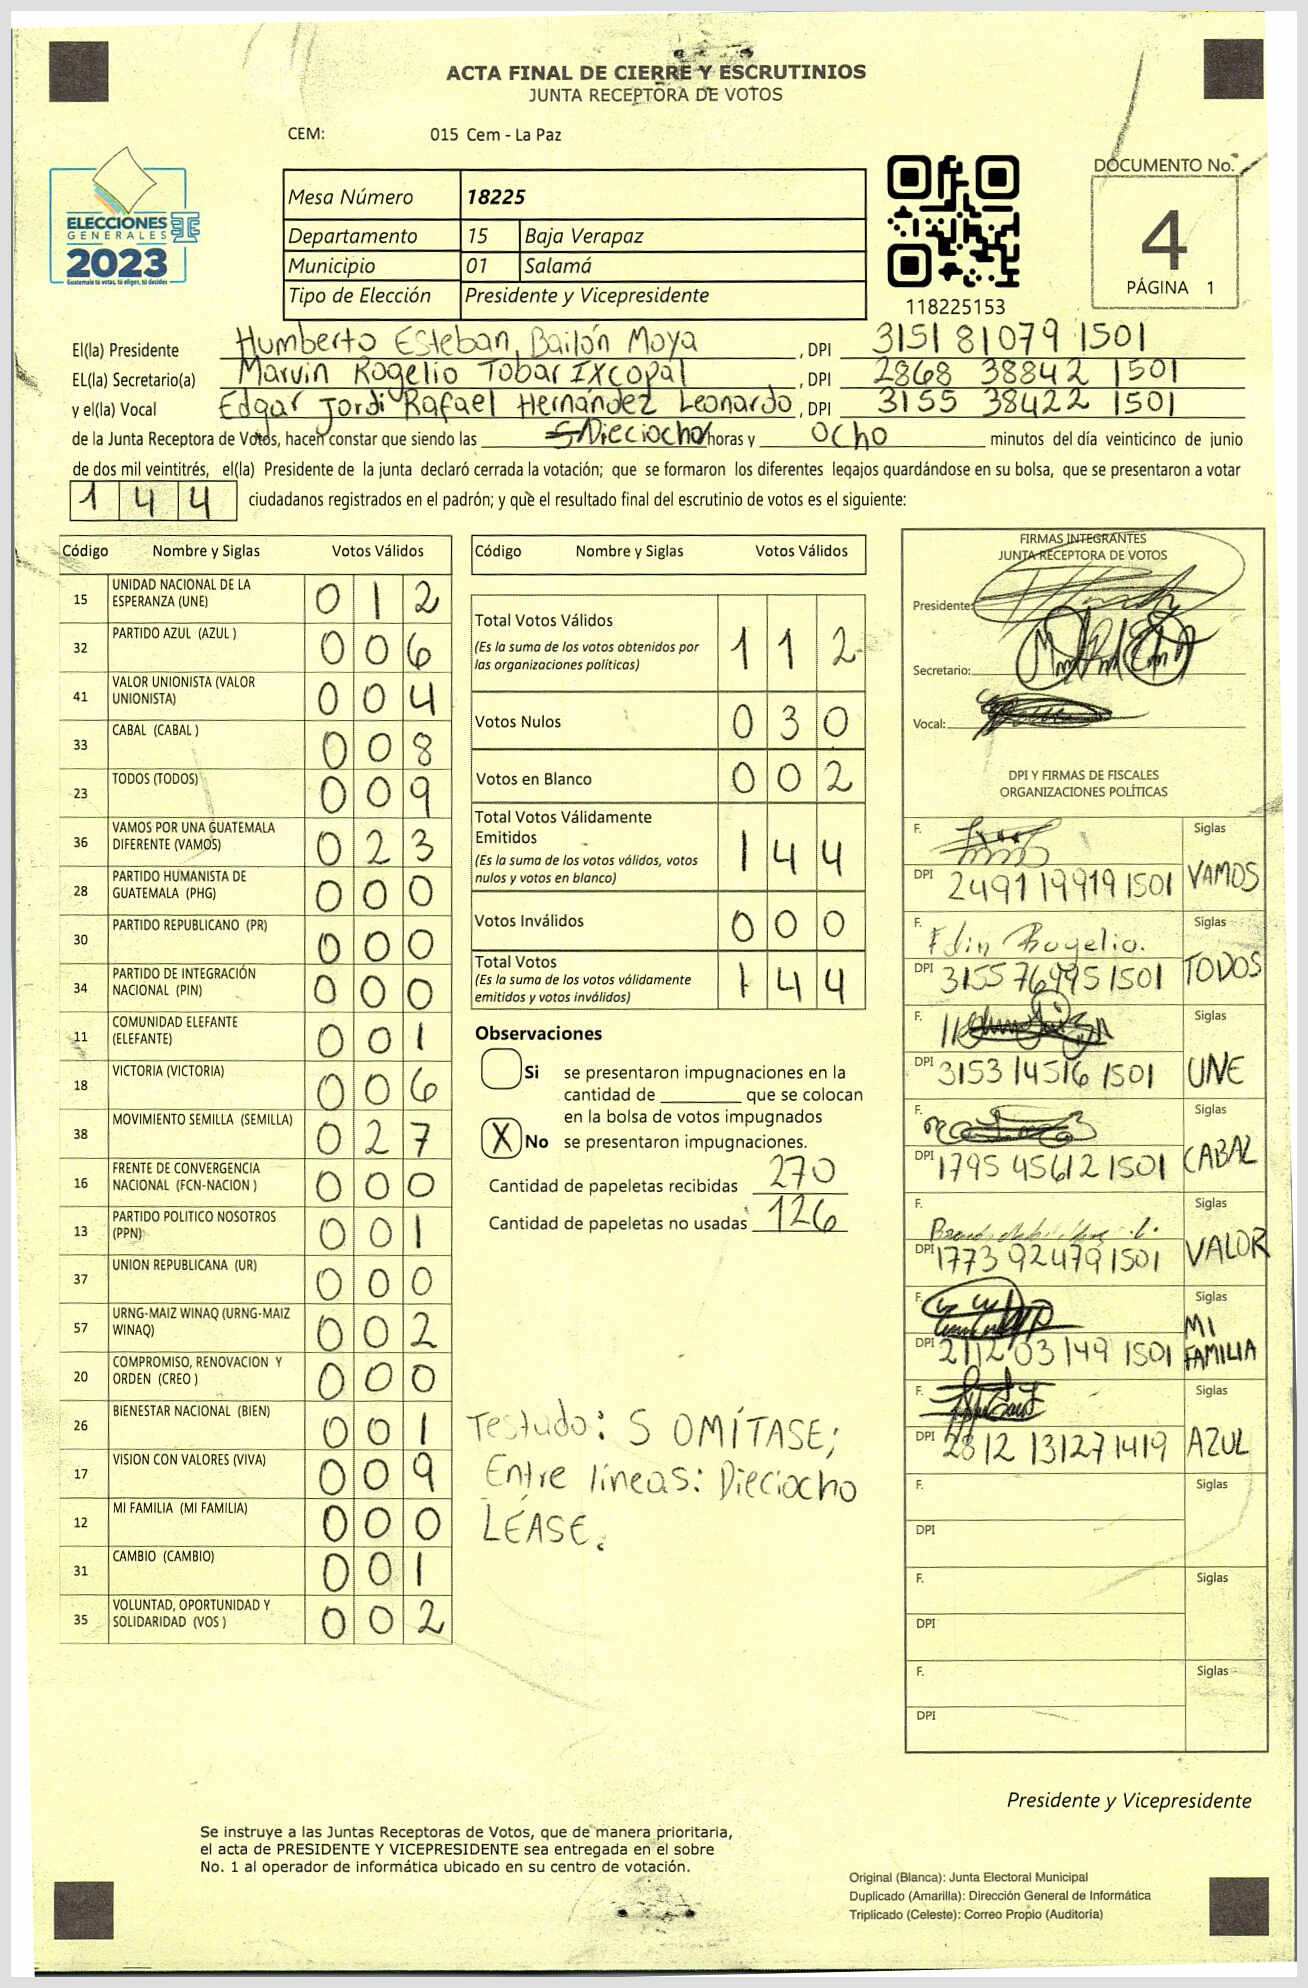 ACTA FINAL DE CIERRE Y ESCRUTINIOS
JUNTA RECEPTORA DE VOTOS
CEM: 015 Cem - La Paz
ELECCIONES
GENERALES
2023
Guatemala tú votas, tú eliges, tú decides
Mesa Número 18225
Departamento 15 Baja Verapaz
Municipio 01 Salamá
Tipo de Elección Presidente y Vicepresidente
118225153
DOCUMENTO No.
4
PÁGINA 1
El(la) Presidente Humberto Esteban Bailón Moya, DPI 3151 81079 1501
EL(la) Secretario(a) Marvin Rogelio Tobar Ixcopal, DPI 2868 38842 1501
y el(la) Vocal Edgar Jordi Rafael Hernández Leonardo, DPI 3155 38422 1501
de la Junta Receptora de Votos, hacen constar que siendo las Dieciocho horas y Ocho minutos del día veinticinco de junio
de dos mil veintitrés, el(la) Presidente de la junta declaró cerrada la votación; que se formaron los diferentes legajos guardándose en su bolsa, que se presentaron a votar
144 ciudadanos registrados en el padrón; y que el resultado final del escrutinio de votos es el siguiente:
Código Nombre y Siglas Votos Válidos
15 UNIDAD NACIONAL DE LA ESPERANZA (UNE) 012
32 PARTIDO AZUL (AZUL ) 006
41 VALOR UNIONISTA (VALOR UNIONISTA) 004
33 CABAL (CABAL ) 008
23 TODOS (TODOS) 009
36 VAMOS POR UNA GUATEMALA DIFERENTE (VAMOS) 023
28 PARTIDO HUMANISTA DE GUATEMALA (PHG) 000
30 PARTIDO REPUBLICANO (PR) 000
34 PARTIDO DE INTEGRACIÓN NACIONAL (PIN) 000
11 COMUNIDAD ELEFANTE (ELEFANTE) 001
18 VICTORIA (VICTORIA) 006
38 MOVIMIENTO SEMILLA (SEMILLA) 027
16 FRENTE DE CONVERGENCIA NACIONAL (FCN-NACION ) 000
13 PARTIDO POLITICO NOSOTROS (PPN) 001
37 UNION REPUBLICANA (UR) 000
57 URNG-MAIZ WINAQ (URNG-MAIZ WINAQ) 002
20 COMPROMISO, RENOVACION Y ORDEN (CREO ) 000
26 BIENESTAR NACIONAL (BIEN) 001
17 VISION CON VALORES (VIVA) 009
12 MI FAMILIA (MI FAMILIA) 000
31 CAMBIO (CAMBIO) 001
35 VOLUNTAD, OPORTUNIDAD Y SOLIDARIDAD (VOS ) 002
Código Nombre y Siglas Votos Válidos
Total Votos Válidos 112
(Es la suma de los votos obtenidos por
las organizaciones políticas)
Votos Nulos 030
Votos en Blanco 002
Total Votos Válidamente
Emitidos 144
(Es la suma de los votos válidos, votos
nulos y votos en blanco)
Votos Inválidos 000
Total Votos 144
(Es la suma de los votos válidamente
emitidos y votos inválidos)
Observaciones
Si se presentaron impugnaciones en la
cantidad de ________ que se colocan
en la bolsa de votos impugnados
X No se presentaron impugnaciones.
Cantidad de papeletas recibidas 270
Cantidad de papeletas no usadas 126
Testudo: S OMÍTASE;
Entre líneas: Dieciocho
LÉASE.
FIRMAS INTEGRANTES
JUNTA RECEPTORA DE VOTOS
Presidente:
Secretario:
Vocal:
DPI Y FIRMAS DE FISCALES
ORGANIZACIONES POLÍTICAS
F. Siglas
DPI 2491 19919 1501 VAMOS
F. Edin Rogelio. Siglas
DPI 3155 76995 1501 TODOS
F. Siglas
DPI 3153 14516 1501 UNE
F. Siglas
DPI 1795 45612 1501 CABAL
F. Siglas
DPI 1773 92479 1501 VALOR
F. Siglas
DPI 2112 03149 1501 MI FAMILIA
F. Siglas
DPI 2812 13127 1419 AZUL
F. Siglas
DPI
F. Siglas
DPI
F. Siglas
DPI
Presidente y Vicepresidente
Se instruye a las Juntas Receptoras de Votos, que de manera prioritaria,
el acta de PRESIDENTE Y VICEPRESIDENTE sea entregada en el sobre
No. 1 al operador de informática ubicado en su centro de votación.
Original (Blanca): Junta Electoral Municipal
Duplicado (Amarilla): Dirección General de Informática
Triplicado (Celeste): Correo Propio (Auditoría)